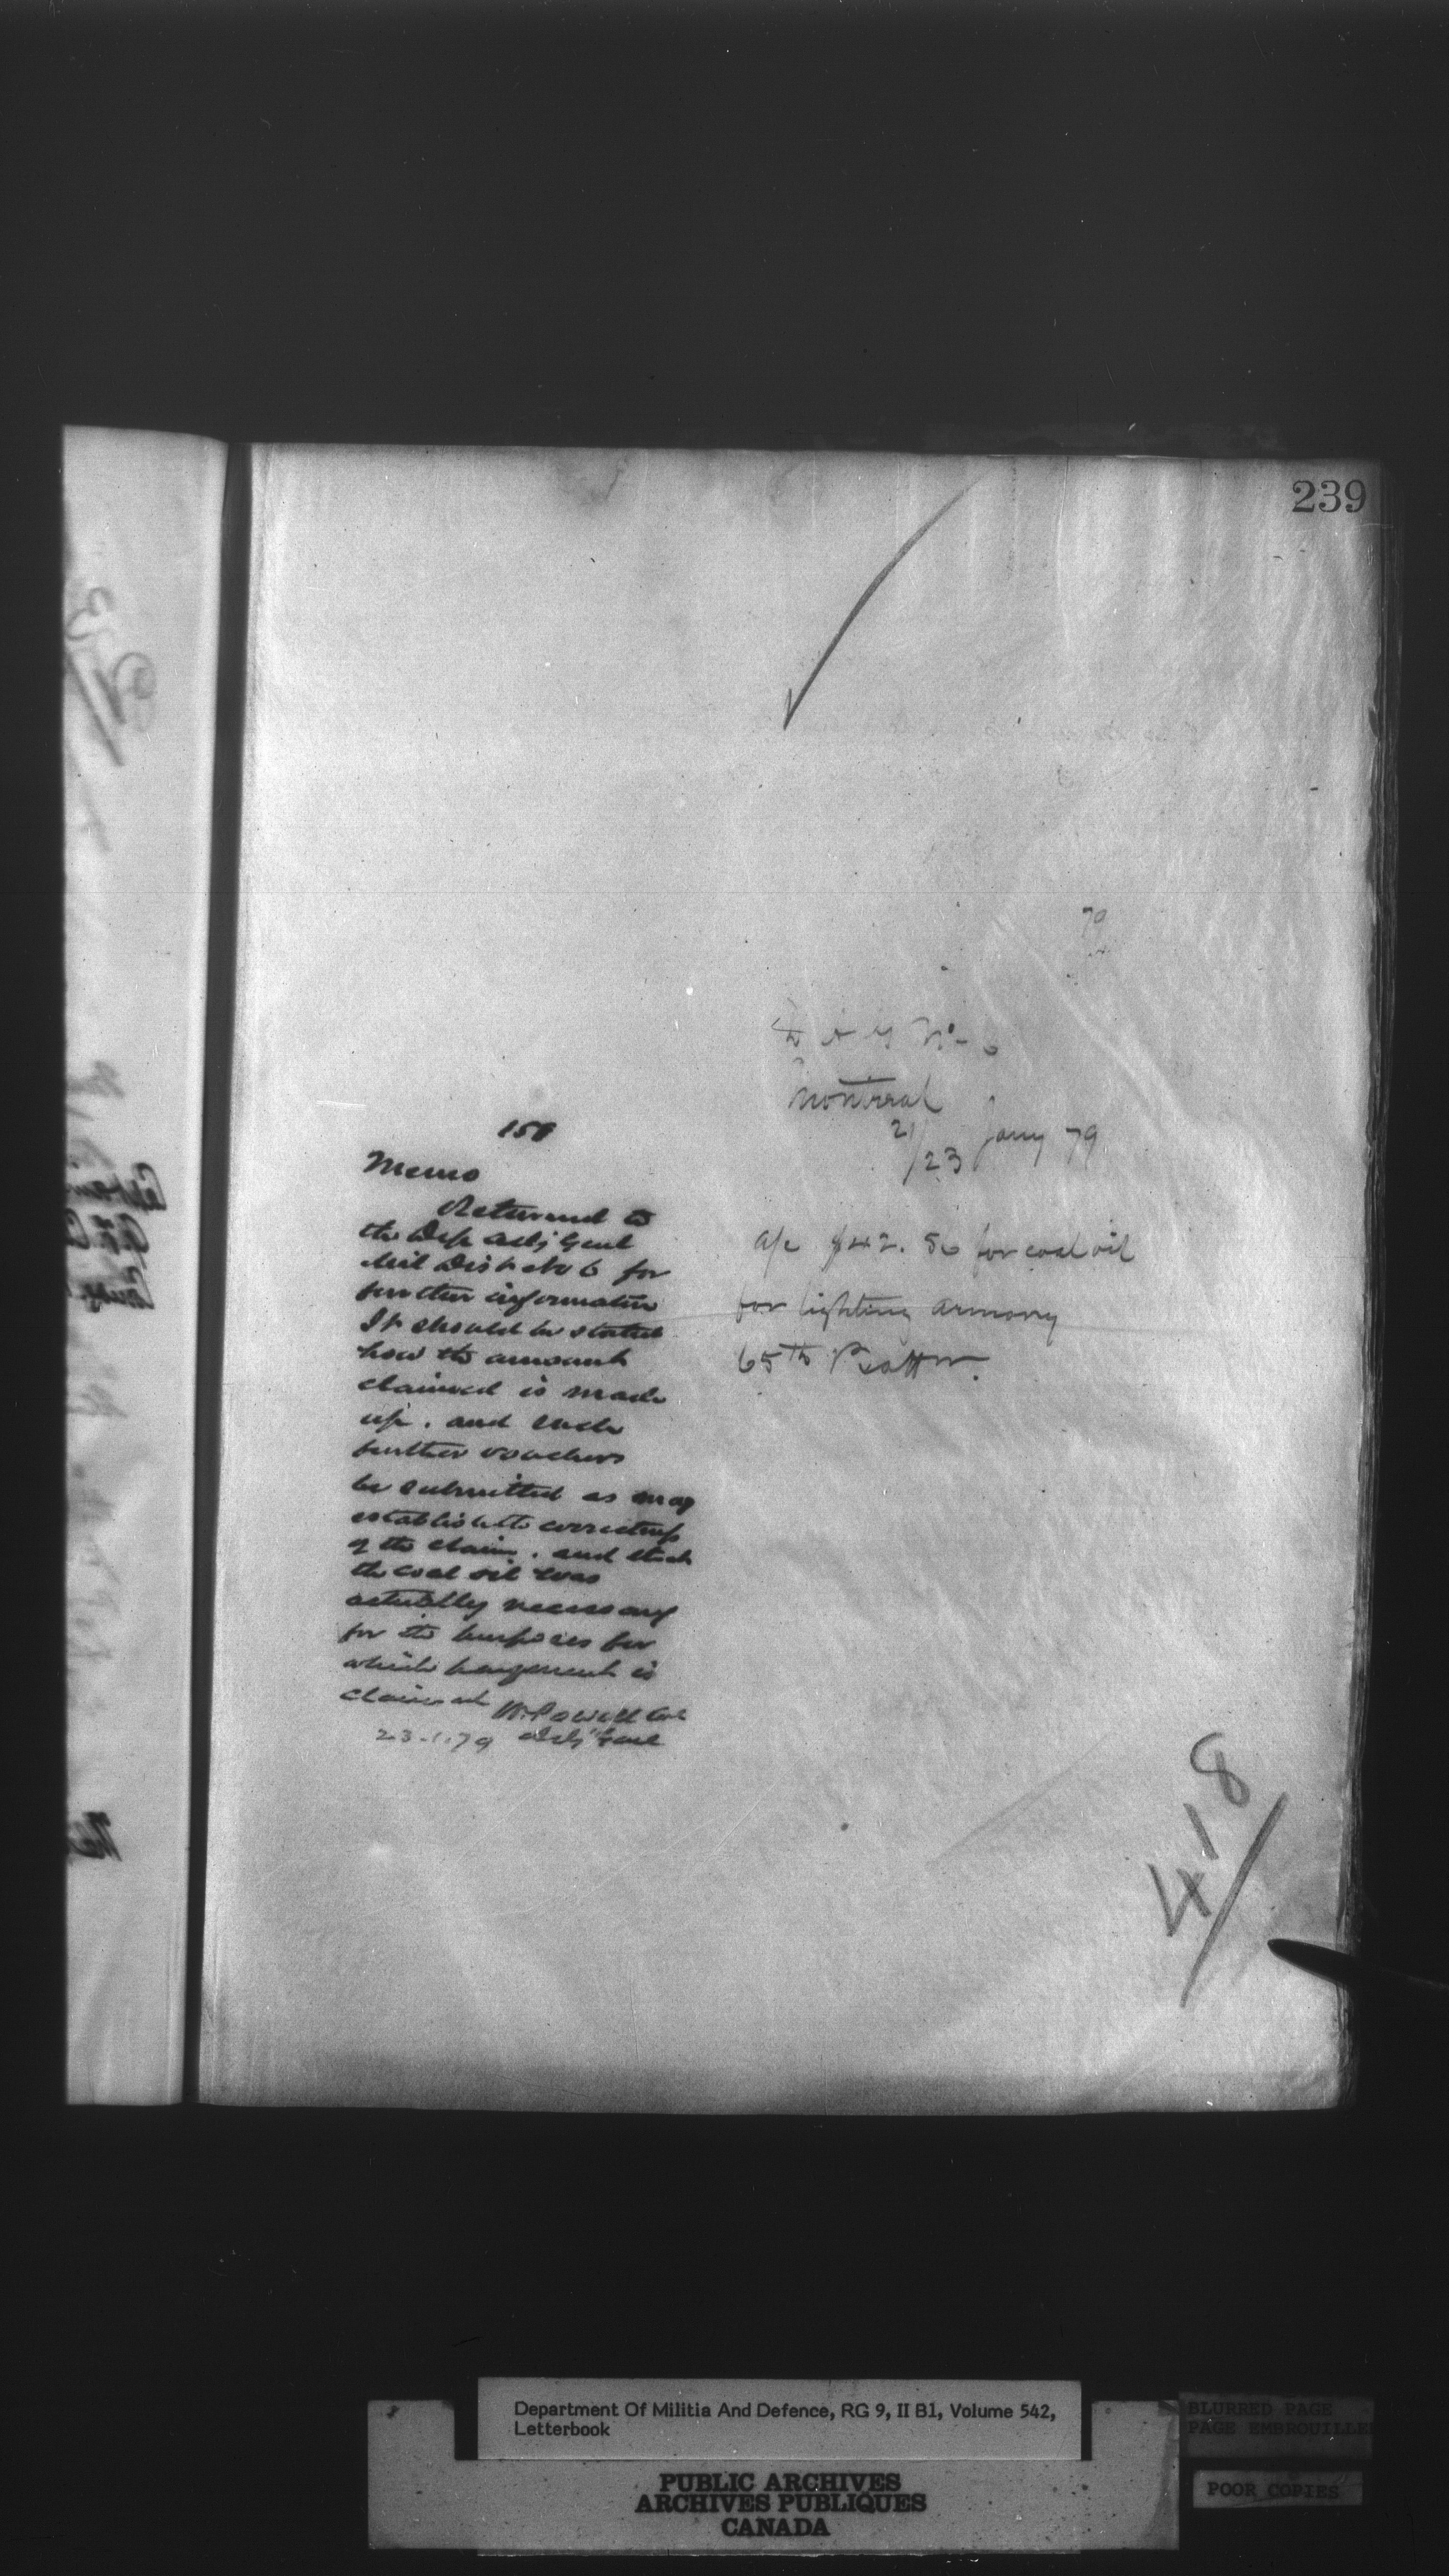 239
D A G No. 6
Montreal
21/23 Jany 79
a/c $42.50 for coal oil
for lighting armory
65th Battn.
150
Memo
Returned to
the Dep Adj Genl
Mil Dist No 6 for
further information
It should be stated
how the amount
claimed is made
up. and such
further vouchers
be submitted as may
establish the correctness
of the claim. and that
the coal oil was
actually necessary
for the purposes for
which payment is
claimed W. Powell Col
23.1.79 Adj Genl
418
Department Of Militia And Defence, RG 9, II B1, Volume 542,
Letterbook
PUBLIC ARCHIVES
ARCHIVES PUBLIQUES
CANADA
BLURRED PAGE
PAGE EMBROUILLE
POOR COPIES